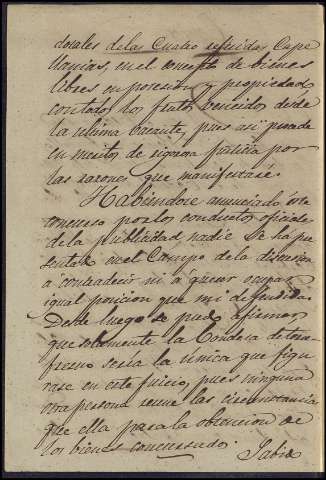 dotales de las Cuatro referidas Cape
llanias, en el concepto de bienes
libres en posesion y propiedad
con todos los frutos vencidos desde
la ultima vacante, pues asi procede
en meritos de rigorosa justicia por
las razones que manifestaré.
Habiéndose anunciado éste
concurso por los conductos oficiales
de la publicidad, nadie se ha pre
sentado en el Campo de la discusion
á contradecir ni á querer ocupar
igual posicion que mi defendida.
Desde luego se pudo afirmar
que solamente la Condesa de
fresno seria la única que figu
rase en este juicio, pues ninguna
otra persona reune las circunstancias
que ella para la obtencion de
los bienes concursados.
Sabido